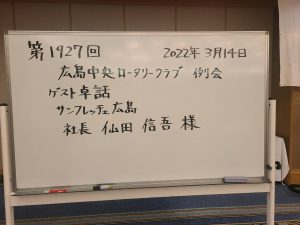 第1927回 2022年3月14日
広島中央ロータリークラブ 例会
ゲスト卓話
サンフレッチェ広島
社長 仙田 信吾 様